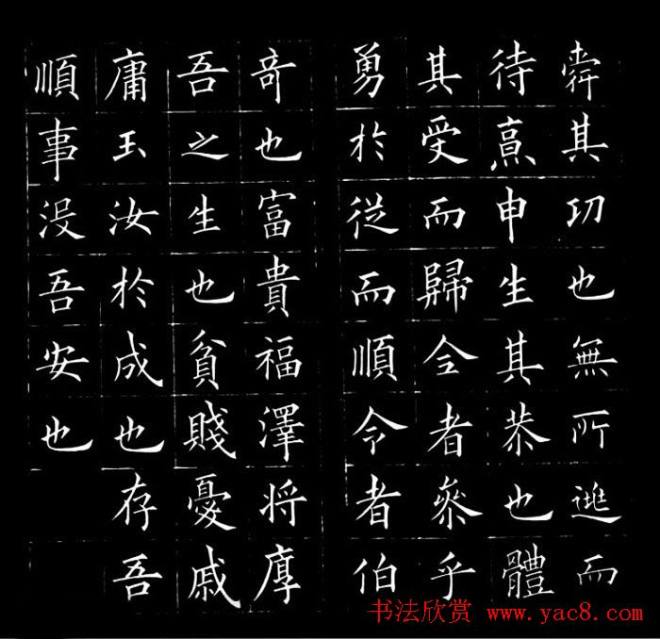 舜其功也無所逃而
待烹申生其恭也體
其受而歸全者參乎
勇於從而順令者伯
奇也富貴福澤将厚
吾之生也貧賤憂戚
庸玉汝於成也存吾
順事没吾安也
书法欣赏 www.yac8.com